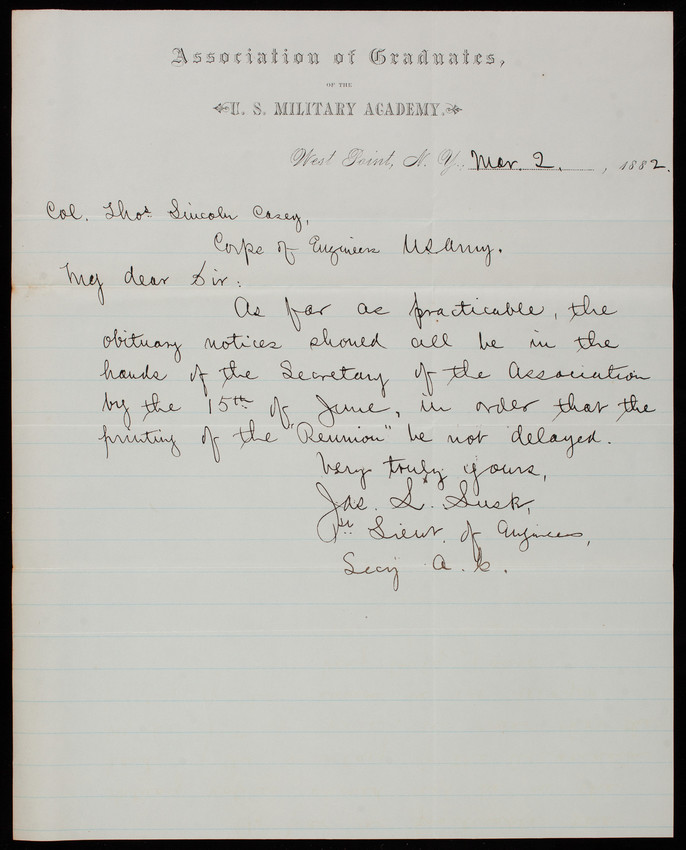 Association of Graduates,
OF THE
U. S. MILITARY ACADEMY.
West Point, N. Y., Mar. 2, 1882.
Col. Thos. Lincoln Casey,
Corps of Engineers US Army.
My dear Sir:
As far as practicable, the
obituary notices should all be in the
hands of the Secretary of the Association
by the 15th of June, in order that the
printing of the "Reunion" be not delayed.
Very truly yours,
Jas. L. Lusk,
1st Lieut. of Engineers,
Secy A. G.